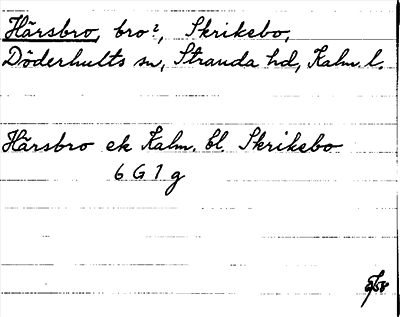 Härsbro, bro?, Skrikebo,
Döderhults sn, Stranda hd, Kalm. l.
Härsbro ek Kalm. bl. Skrikebo
6 G 1 g